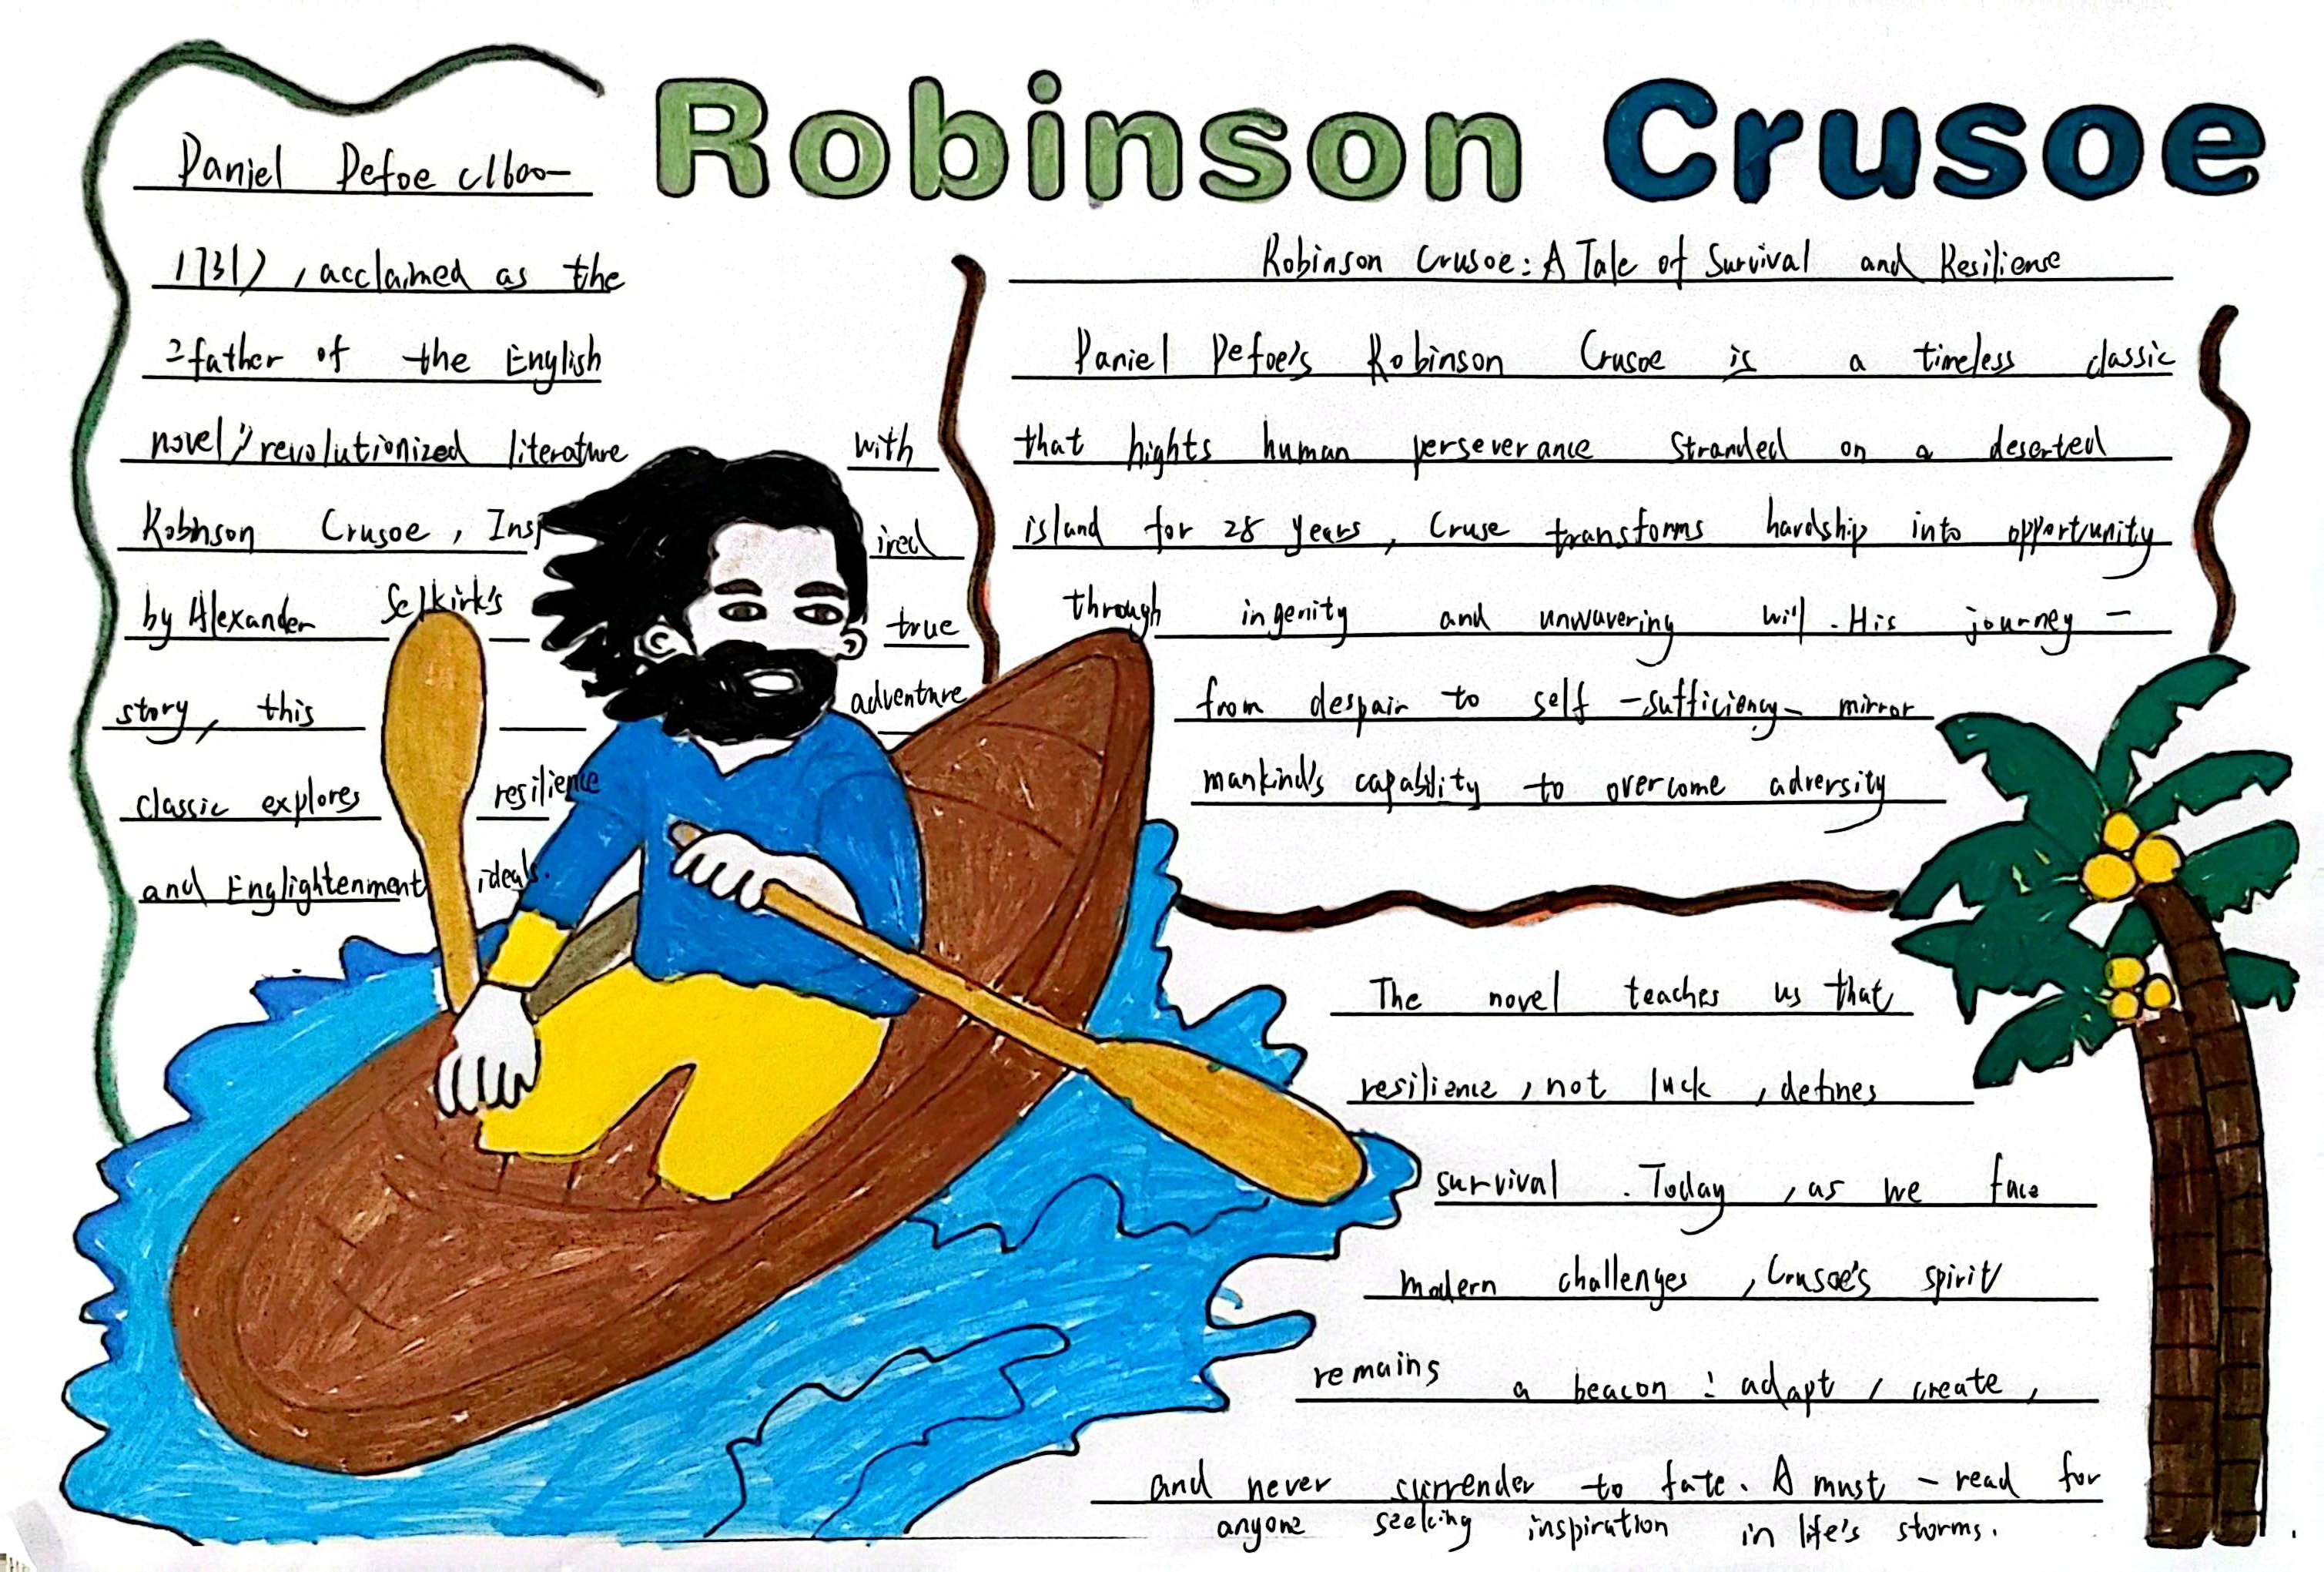 Robinson Crusoe
Daniel Defoe (1600-
1731), acclaimed as the
"father of the English
novel", revolutionized literature with
Robinson Crusoe, Inspired
by Alexander Selkirk's true
story, this adventure
classic explores resilience
and Englightenment ideals.
Robinson Crusoe: A Tale of Survival and Resiliense
Daniel Defoe's Robinson Crusoe is a timeless classic
that hights human perseverance Stranded on a deserted
island for 28 years, Cruse transforms hardship into opportunity
through ingenity and unwavering will. His journey -
from despair to self -sufficiency- mirror
mankind's capability to overcome adversity
The novel teaches us that
resilience, not luck, defines
survival. Today, as we face
modern challenges, Crusoe's spirit
remains a beacon: adapt, create,
and never surrender to fate. A must - read for
anyone seeking inspiration in life's storms.